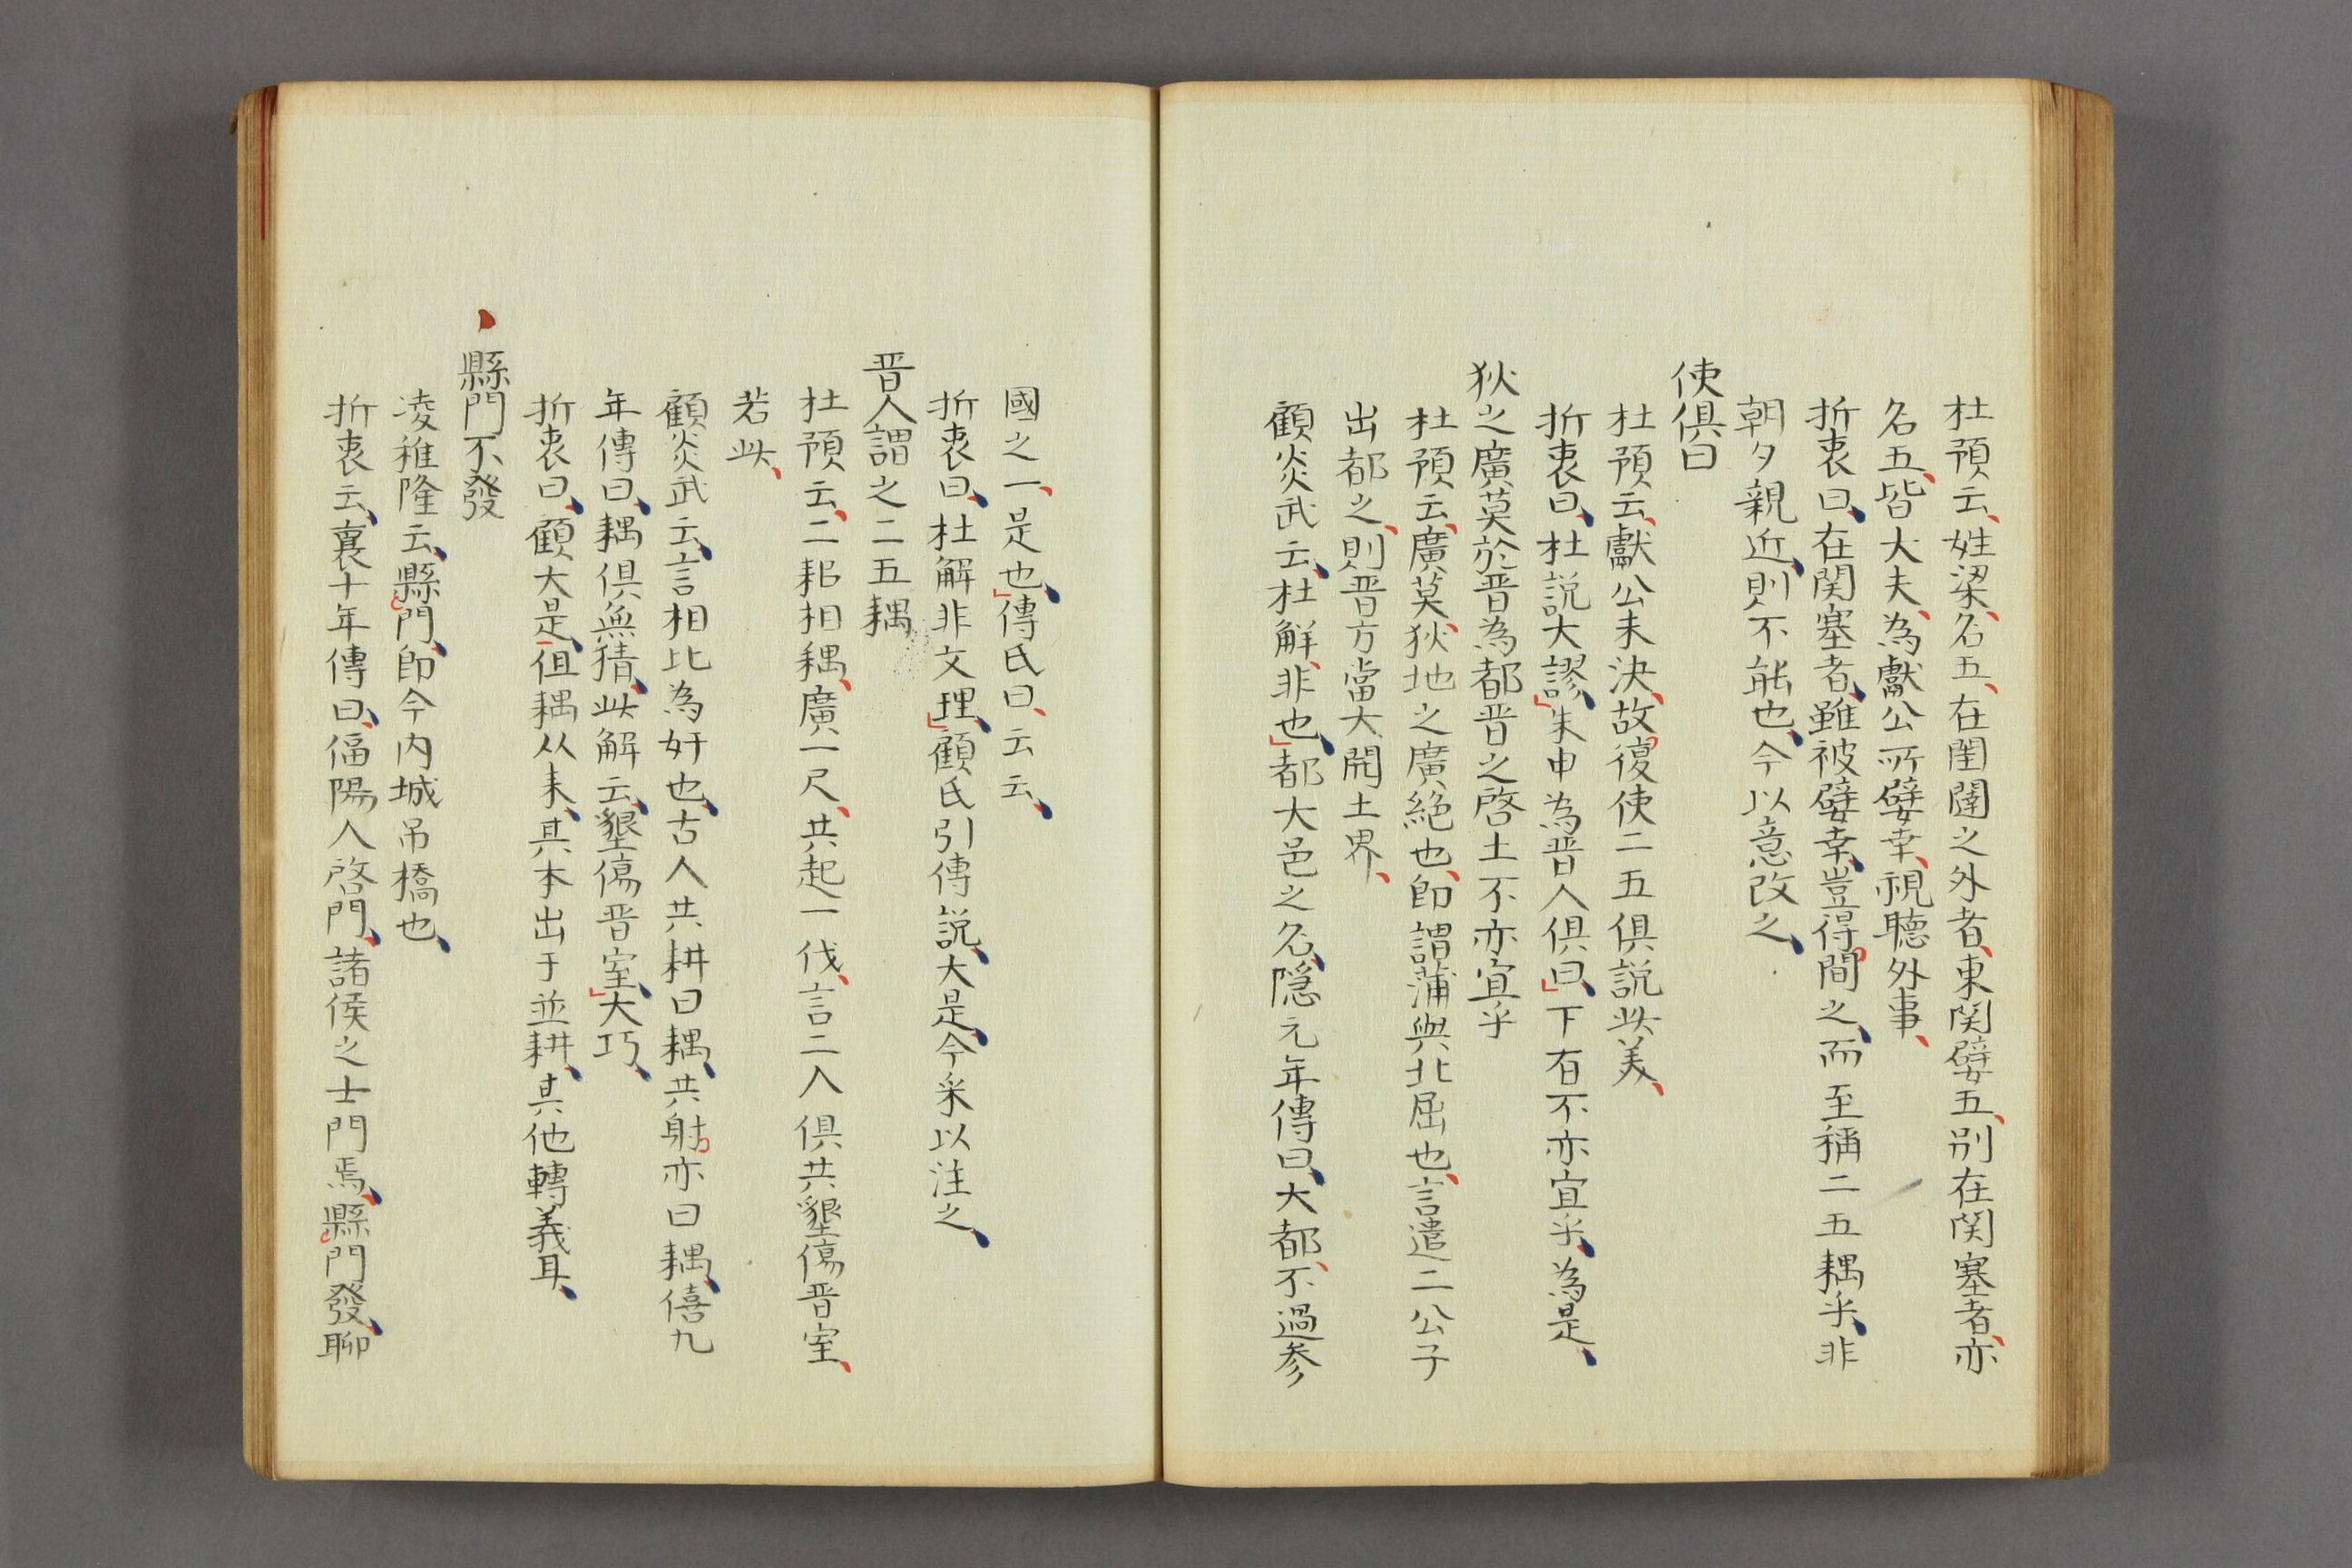 杜預云、姓梁、名五、在閨闥之外者、東関嬖五、別在関塞者、亦
名五、皆大夫、為獻公所嬖幸、視聽外事、
折衷曰、在関塞者、雖被嬖幸、豈得間之、而至稱二五耦乎、非
朝夕親近、則不能也、今以意改之、
使俱曰
杜預云、獻公未決、故復使二五俱説此美、
折衷曰、杜説大謬、朱申為晋人俱曰、下有不亦宜乎、為是、
狄之廣莫於晋為都晋之啓土不亦宜乎
杜預云、廣莫、狄地之廣絶也、即謂蒲與北屈也、言遣二公子
出都之、則晋方當大開土界、
顧炎武云、杜解、非也、都大邑之名、隠元年傳曰、大都、不過参
國之一、是也、傳氏曰、云云、
折衷曰、杜解非文理、顧氏引傳説、大是、今采以注之、
晋人謂之二五耦
杜預云、二耜相耦、廣一尺、共起一伐、言二人俱共墾傷晋室、
若此、
顧炎武云、言相比為奸也、古人共耕曰耦、共射亦曰耦、僖九
年傳曰、耦俱無猜、此解云、墾傷晋室、大巧、
折衷曰、顧大是、但耦从耒、其本出于並耕、其他轉義耳、
縣門不發
凌稚隆云、縣門、即今内城吊橋也、
折衷云、襄十年傳曰、偪陽人啓門、諸侯之士門焉、縣門發、聊